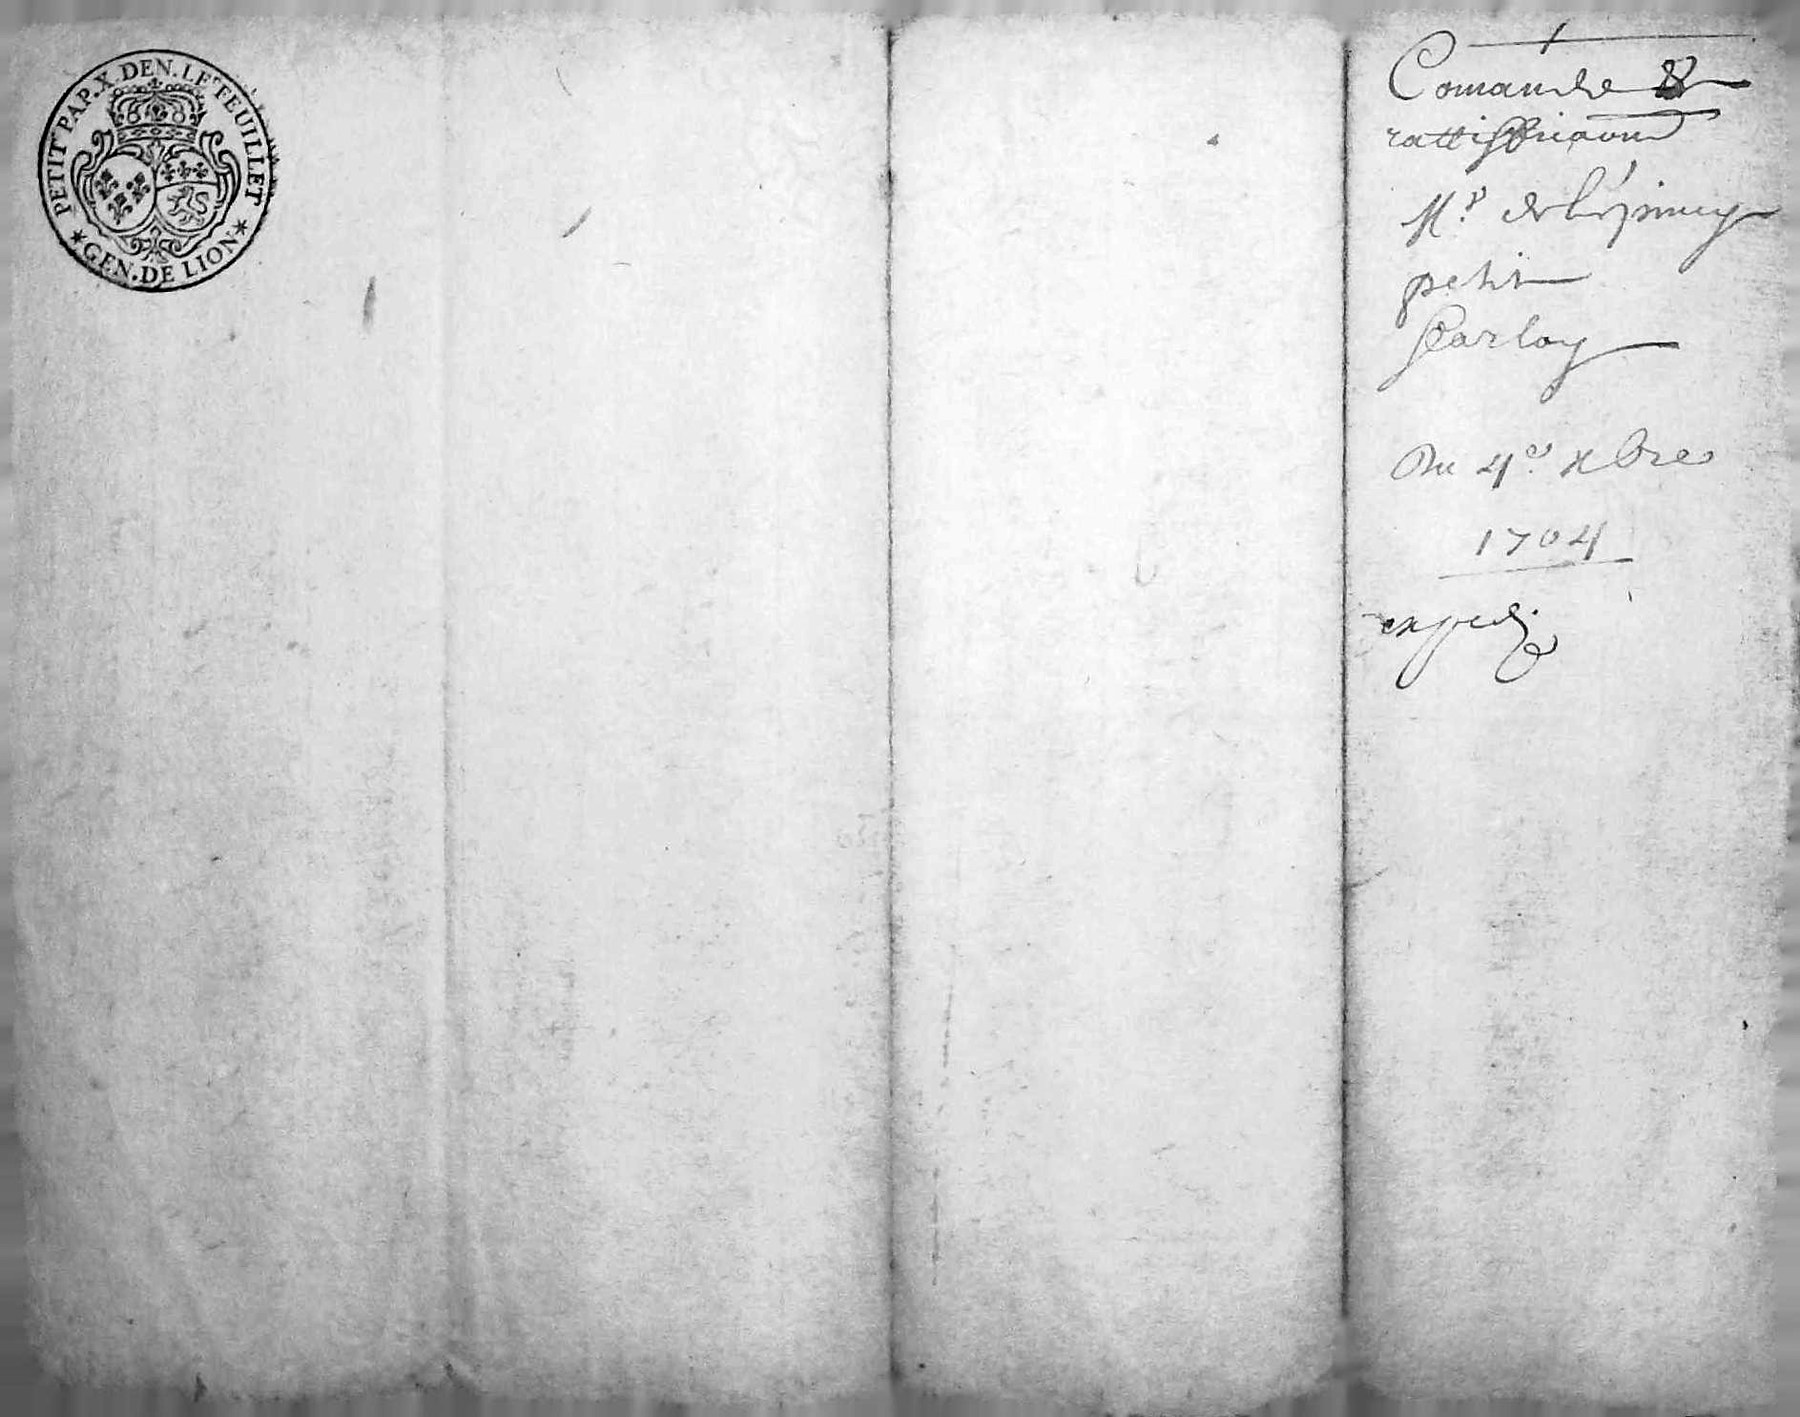 PETIT PAP. X. DEN. LE FEUILLET
GEN. DE LION
Comande &
rattiffica'on
Mr. de l'épinay
petit
Parlay
Du 4e. xbre
1704
expedie